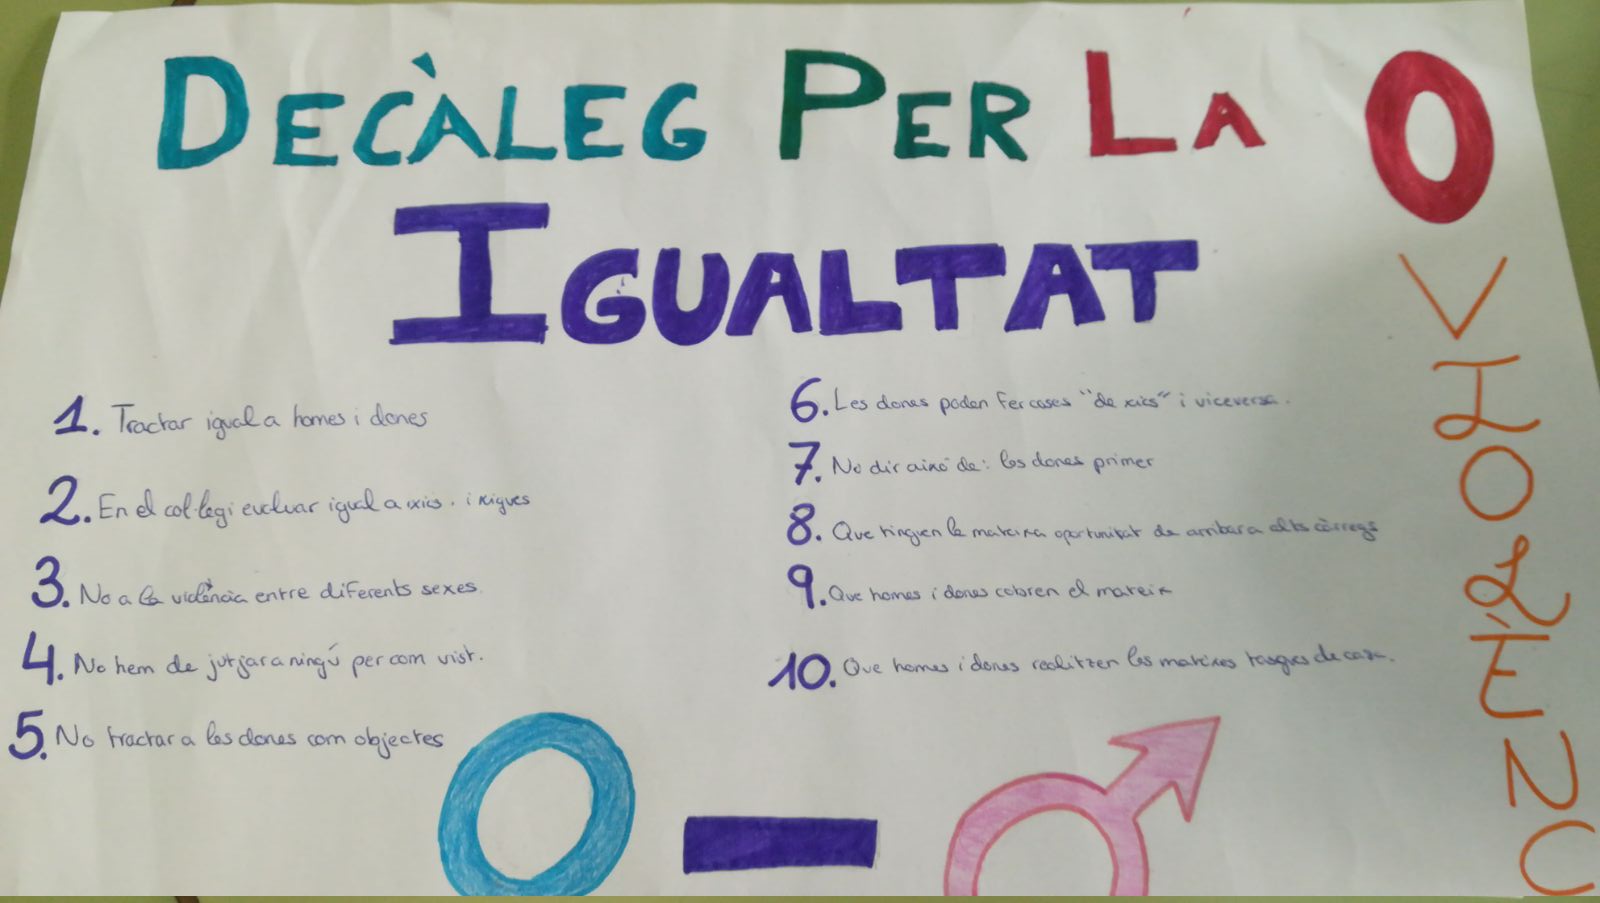 DECÀLEG PER LA
IGUALTAT
1. Tractar igual a homes i dones
2. En el col·legi evaluar igual a xics. i xigues
3. No a la violència entre diferents sexes.
4. No hem de jutjar a ningú per com vist.
5. No tractar a les dones com objectes
6. Les dones poden fer coses "de xics" i viceversa.
7. No dir això de: les dones primer
8. Que tinguen la mateixa oportunitat de arribar a alts càrregs
9. Que homes i dones cobren el mateix
10. Que homes i dones realitzen les mateixes tasques de casa.
0
VIOLÈNC